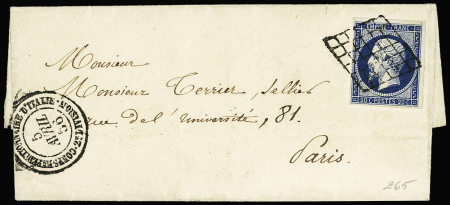 EMPIRE FRANC
20 C POSTES 20 C
Monsieur
Monsieur Terrier, Sellier
rue de l'université, 81.
Paris.
CORPS EXPEDITIONNAIRE D'ITALIE
5
AVRIL
56
265